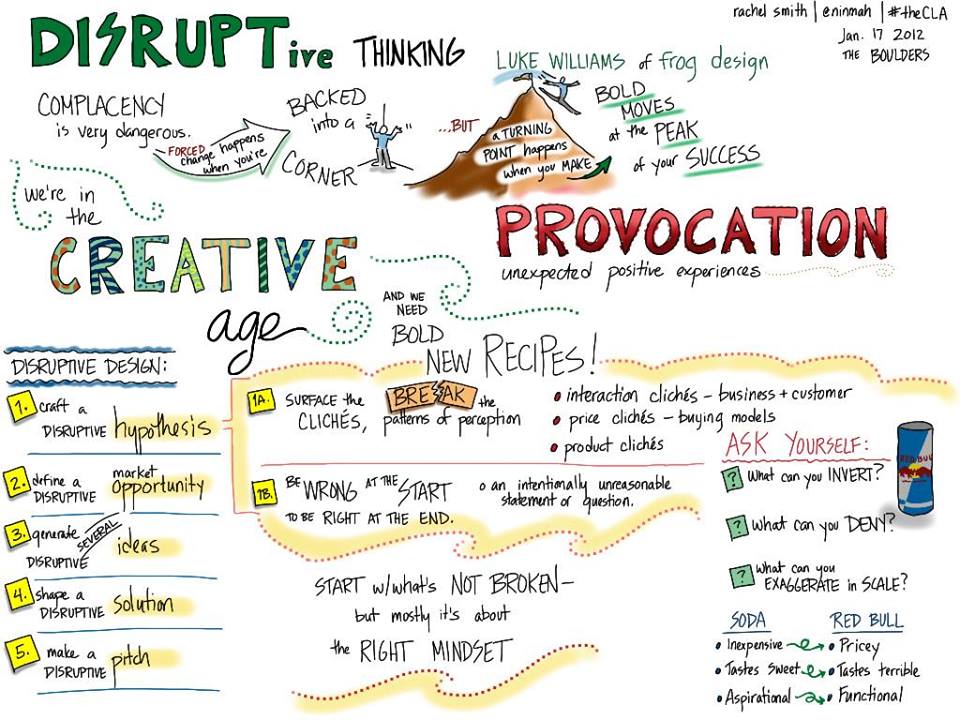 rachel smith | @ninmah | #theCLA
Jan. 17 2012
THE BOULDERS
DISRUPTive THINKING
LUKE WILLIAMS of frog design
COMPLACENCY
is very dangerous.
FORCED
change happens
when you're
BACKED
into a
CORNER
...BUT
a TURNING
POINT happens
when you MAKE
BOLD
MOVES
at the PEAK
of your SUCCESS
we're in
the
CREATIVE
age
PROVOCATION
unexpected positive experiences
AND WE
NEED
BOLD
NEW RECIPES!
DISRUPTIVE DESIGN:
1. craft a
DISRUPTIVE hypothesis
2. define a
DISRUPTIVE market
opportunity
3. generate SEVERAL
DISRUPTIVE ideas
4. shape a
DISRUPTIVE solution
5. make a
DISRUPTIVE pitch
1A. SURFACE the
CLICHÉS, BREAK the
patterns of perception
• interaction clichés – business + customer
• price clichés – buying models
• product clichés
1B. BE WRONG AT THE START
TO BE RIGHT AT THE END.
o an intentionally unreasonable
statement or question.
START w/what's NOT BROKEN–
but mostly it's about
the RIGHT MINDSET
ASK YOURSELF:
? What can you INVERT?
? what can you DENY?
? what can you
EXAGGERATE in SCALE?
RED BULL
SODA RED BULL
• Inexpensive • Pricey
• Tastes sweet • Tastes terrible
• Aspirational • Functional